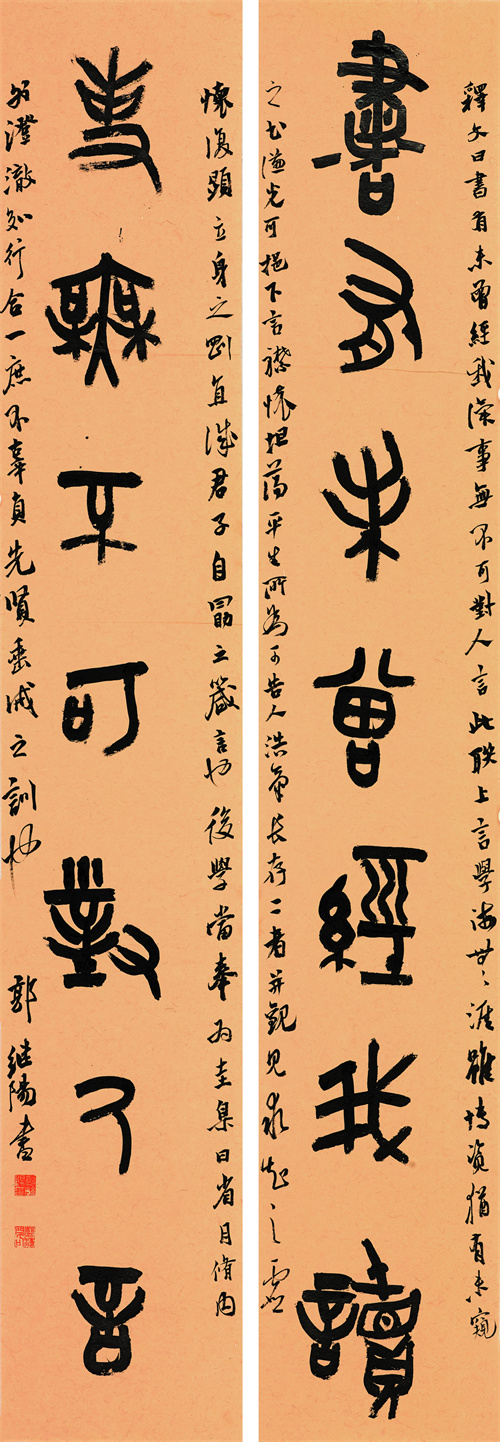 釋文曰書有未曾經我讀事無不可對人言此联上言學海無涯雖博資猶有未窺
書有未曾經我讀
之书謙光可挹下言襟懷坦荡平生所為可告人浩氣長存二者并觀見求知之虚
懷復顯立身之剛直誠君子自勗之箴言也後學當奉為圭臬日省月脩内
事無不可對人言
外澄澈知行合一庶不辜負先賢垂诫之訓也
郭继陽書